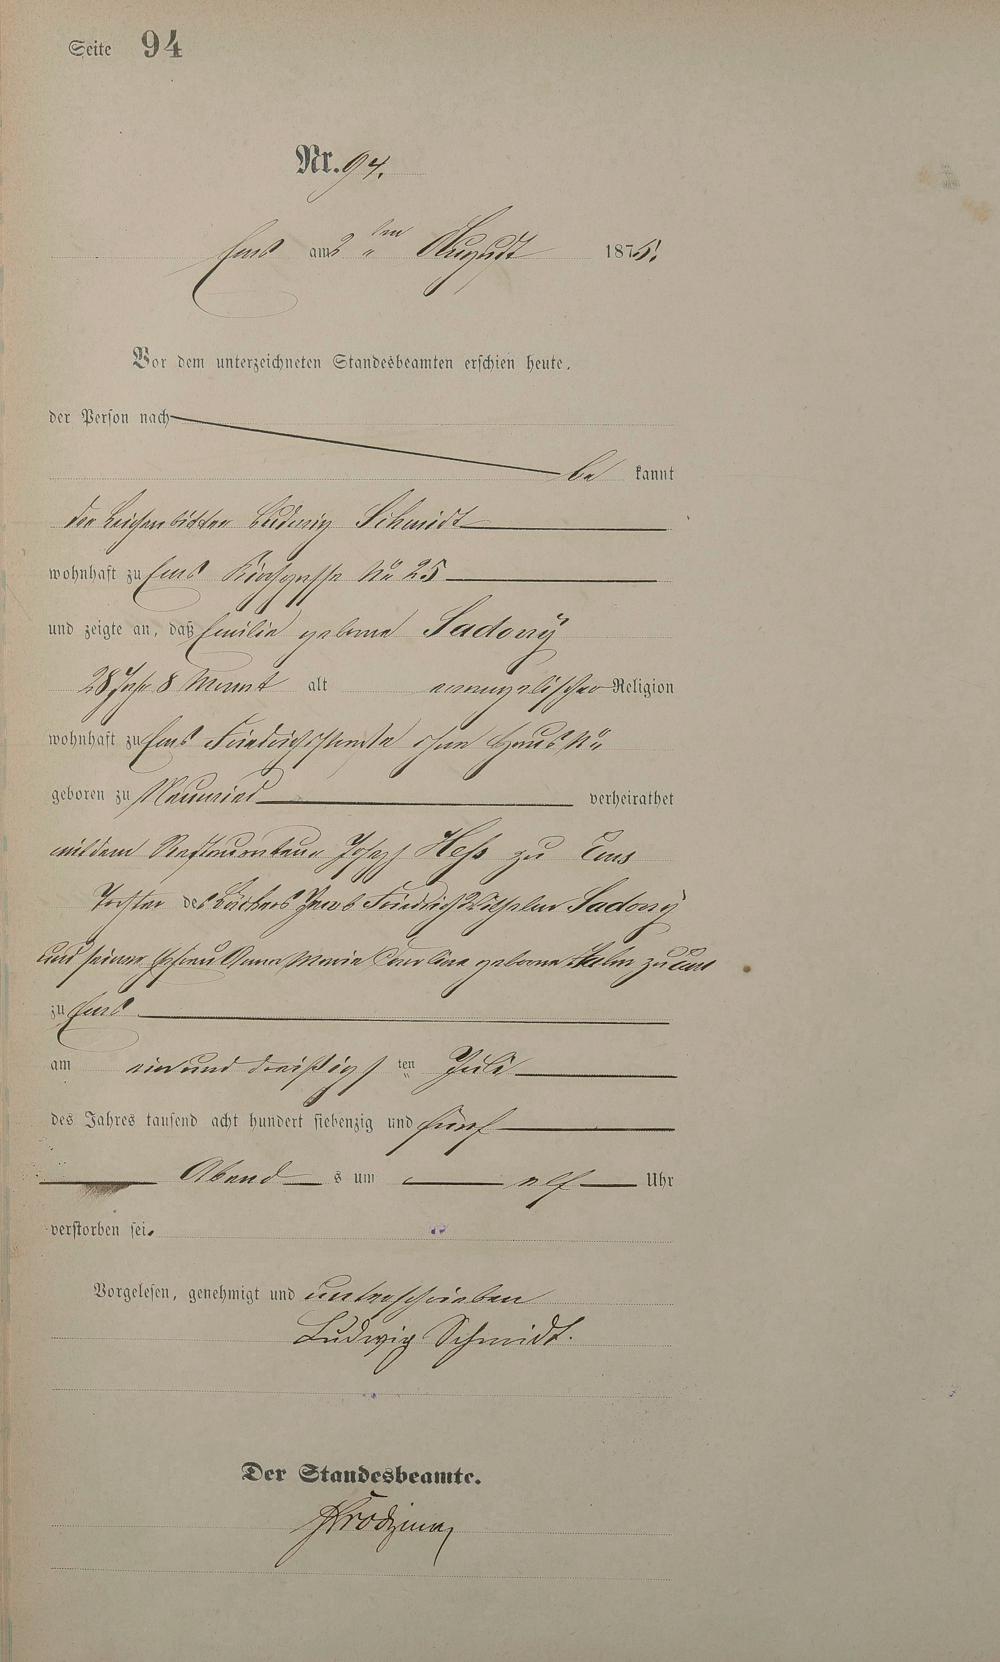 Seite 94
Nr. 94.
Ems am 2 ten August 1875.
Vor dem unterzeichneten Standesbeamten erschien heute,
der Person nach
be kannt
der Leichenbitter Ludwig Schmidt
wohnhaft zu Ems Kirchgasse No 25
und zeigte an, daß Emilie geborne Sadony
28 Jahr 8 Monat alt evangelischer Religion
wohnhaft zu Ems Friedrichstraße ohne Haus No
geboren zu Neuwied verheirathet
mit dem Restaurateur Joseph Heß zu Ems
Tochter des Bäckers Jacob Friedrich Wilhelm Sadony
und seiner Ehefrau Anna Maria Caroline geborne zu Ems
zu Ems
am ein und dreißigs ten Juli
des Jahres tausend acht hundert siebenzig und fünf
Abend s um elf Uhr
verstorben sei.
Vorgelesen, genehmigt und unterschrieben
Ludwig Schmidt.
Der Standesbeamte.